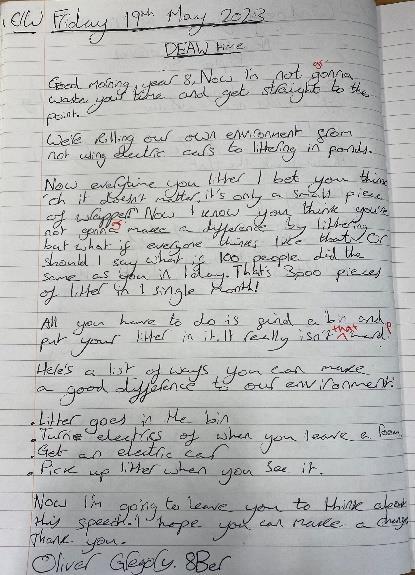 C/W Friday 19th May 2023
DEAW hive
Good morning, year 8. Now I'm not gonna
waste your time and get straight to the
point.
We're killing our own environment from
not using electric cars to littering in ponds.
Now everytime you litter I bet you think
oh it doesn't matter, it's only a small piece
of wrapper. Now I know you think you're
not gonna make a difference by littering
but what if everyone thinks like that. Or
should I say what if 100 people did the
same as you in 1 day. That's 3000 pieces
of litter in 1 single month!
All you have to do is find a bin and
put your litter in it. It really isn't that hard!
Here's a list of ways you can make
a good difference to our environment:
• Litter goes in the bin
• Turn electrics of when you leave a room
• Get an electric car
• Pick up litter when you see it.
Now I'm going to leave you to think about
this speech. I hope you can make a change
Thank you.
Oliver Gregory. 8Ber